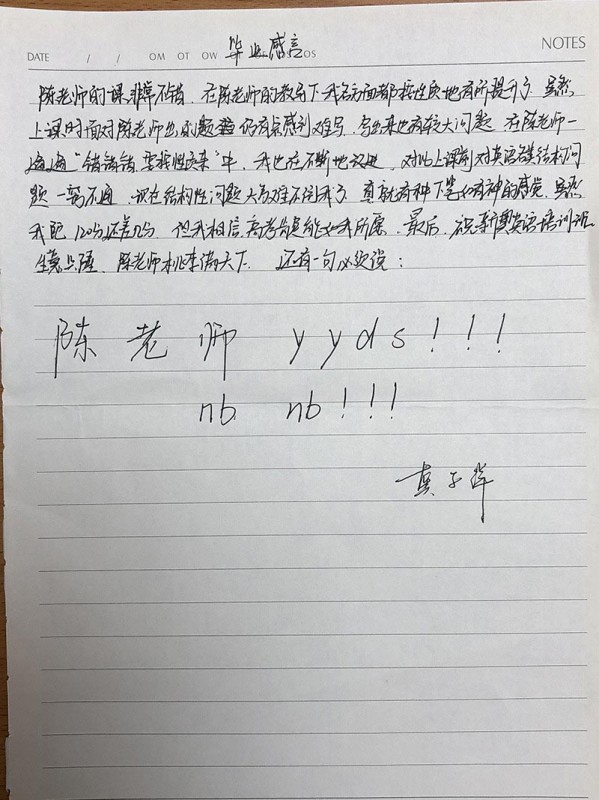 NOTES
DATE / / MOM OT OW 毕业感言 OS
陈老师的课非常不错，在陈老师的教导下我各方面都按性质地有所提升了 虽然
上课时面对陈老师出的题 仍有点感到难写，写出来也有较大问题 在陈老师一
遍遍“错错错 要按性来”中，我也在不断地改进，对比上课前对英语 结构问
题一窍不通 现在结构性问题大多难不倒我了 真就有种下笔如有神的感觉，虽然
我距120分还差几分 但我相信，高考 是能如我所愿，最后，祝 英语培训班
生意兴隆，陈老师桃李满天下. 还有一句必须说：
陈 老 师 y y d s ! ! !
nb nb ! ! !